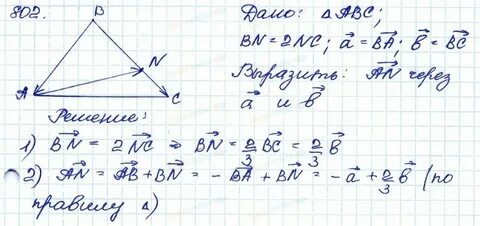 802.
B
N
A
C
Дано: △ABC;
BN = 2NC; a⃗ = BA⃗; b⃗ = BC⃗
Выразить: AN⃗ через
a⃗ и b⃗
Решение:
1) BN⃗ = 2 NC⃗ ⇒ BN⃗ = 2/3 BC⃗ = 2/3 b⃗
2) AN⃗ = AB⃗ + BN⃗ = - BA⃗ + BN⃗ = - a⃗ + 2/3 b⃗ (по
правилу △)